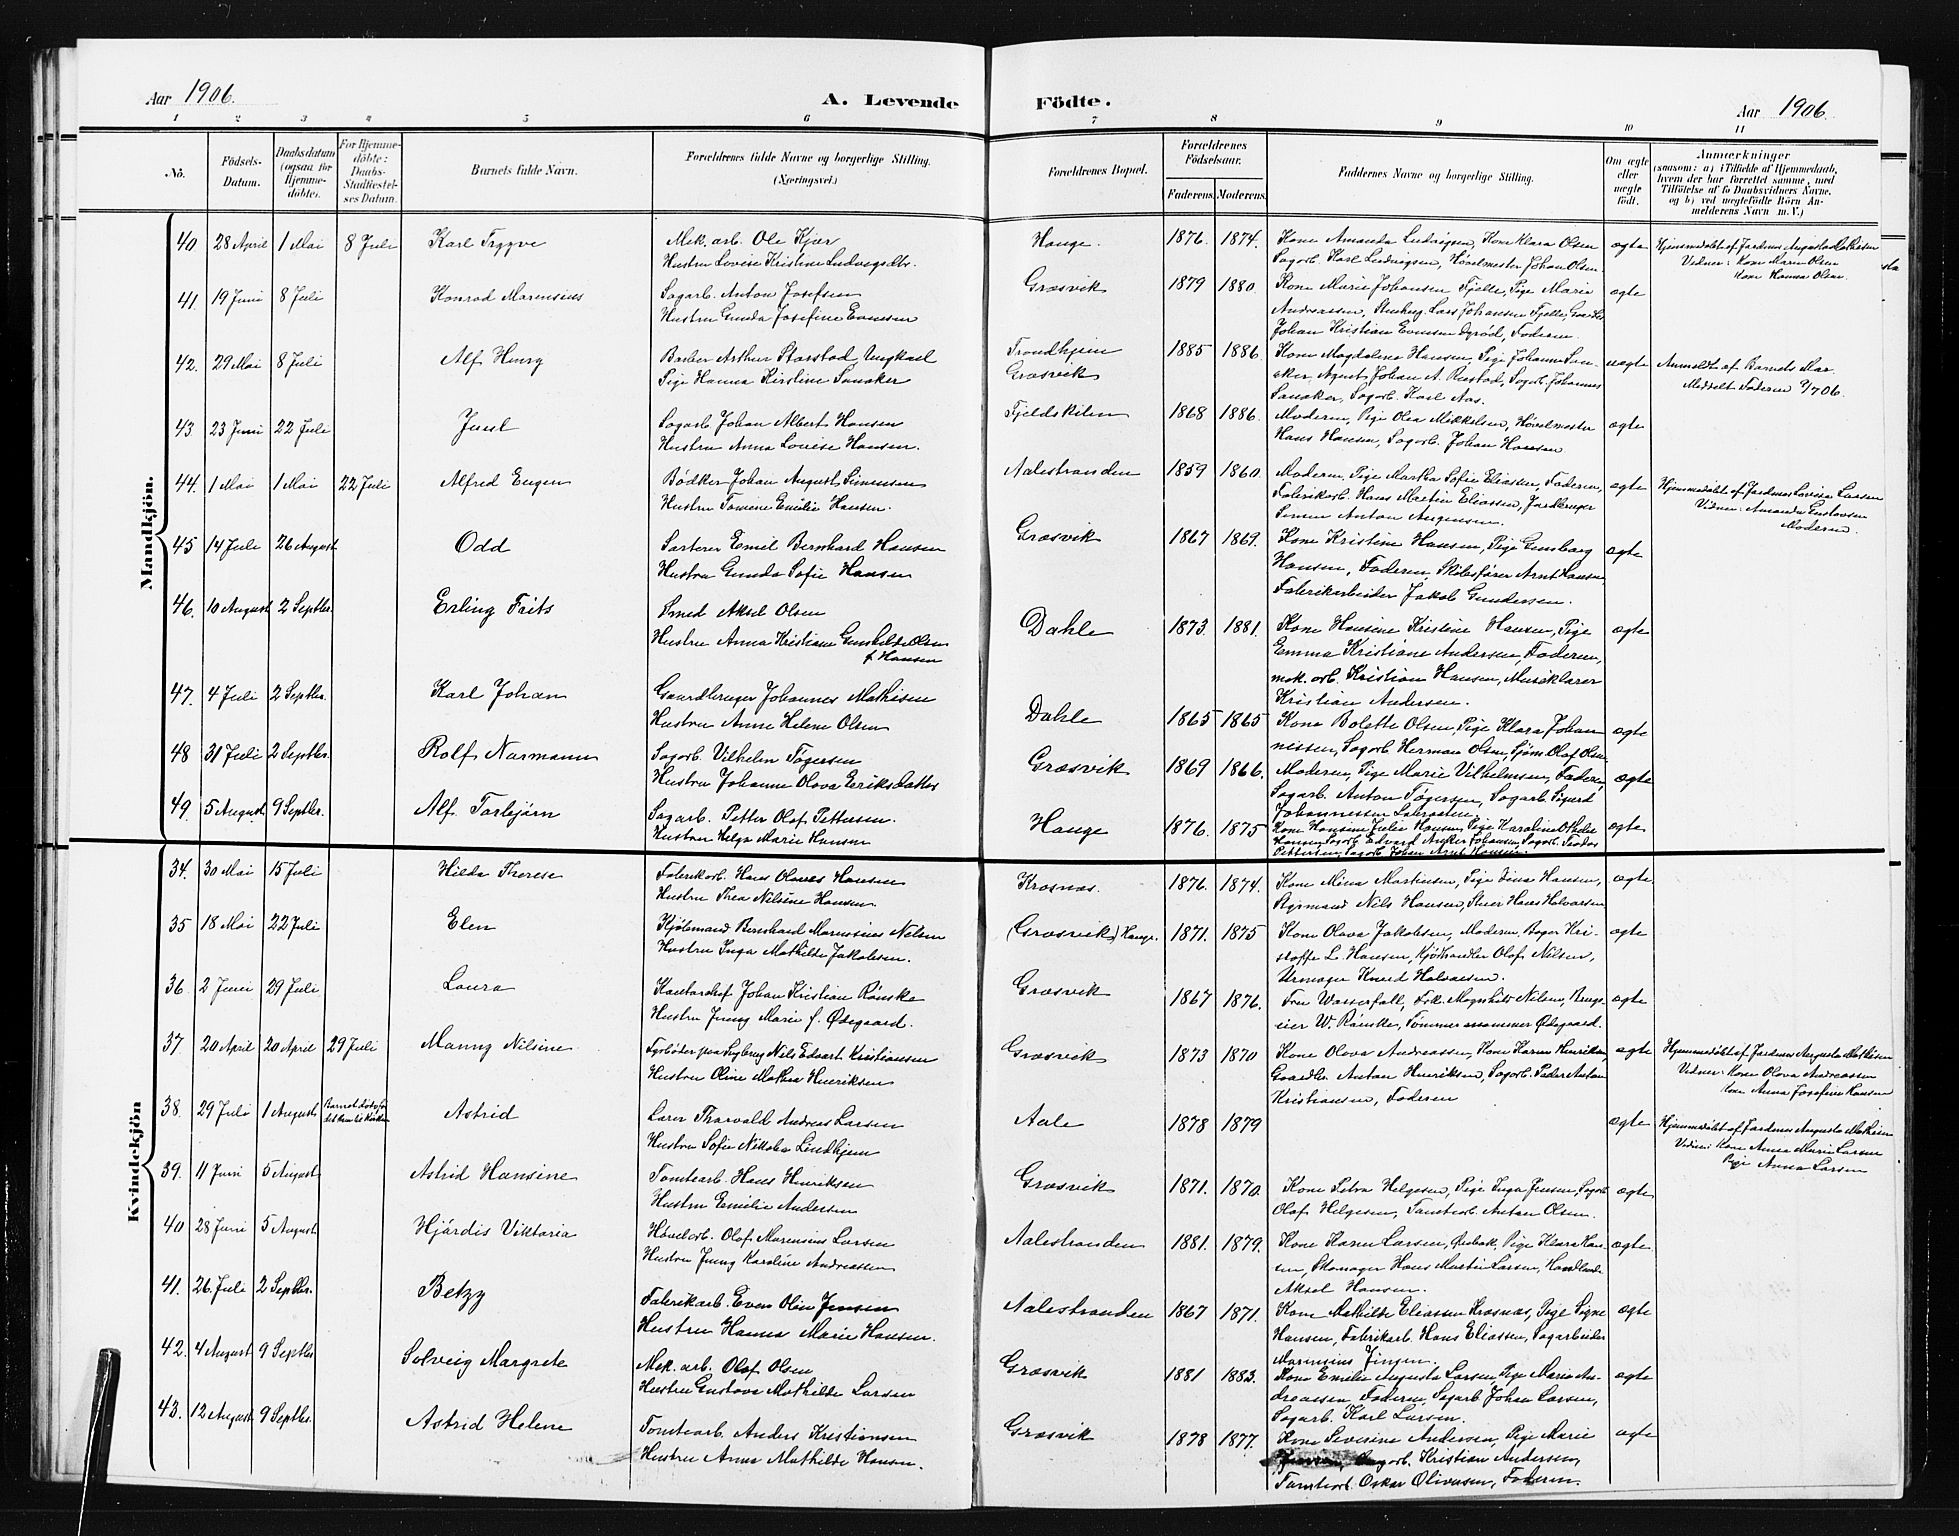 Aar 1906.
A. Levende Födte.
Aar 1906.
1 2 3 4 5 6 7 8 9 10 11
No.
Födsels-Datum.
Daabsdatum (ogsaa for Hjemmedöbte).
For Hjemmedöbte: Daabs-Stadfæstelses Datum.
Barnets fulde Navn.
Forældrenes fulde Navne og borgerlige Stilling.
(Næringsvei.)
Forældrenes Bopæl.
Forældrenes Födselsaar.
Faderens. Moderens.
Faddernes Navne og borgerlige Stilling.
Om ægte eller uægte födt.
Anmærkninger
(saasom: a) i Tilfælde af Hjemmedaab,
hvem der har forrettet samme, med
Tilföielse af to Daabsvidners Navne,
og b) ved uægtefödte Börn Anmelderens Navn m. V.)
Mandkjön.
40 28 April 1 Mai 8 Juli Karl Trygve Mek. arb. Ole Kjær Hauge. 1876. 1874. Kone Amanda Ludvigsen, Kone Klara Olsen ægte Hjemmedøbt af Jordmor Augusta Mathisen
Hustru Lovise Kristine Ludvigsdtr. Sagarb. Karl Ludvigsen, Høvelmester Johan Olsen Vidner: Kone Maren Olsen
Kone Hanna Olsen.
41. 19 Juni 8 Juli Konrad Marensius Sagarb. Anton Josefsen Græsvik 1879 1880. Kone Marie Johansen Fjelle, Pige Marie ægte
Hustru Gunda Josefine Evensen Andreassen, Stenhug. Lars Johansen Fjelle,
Johan Kristian Evensen Dyrød, Faderen.
42. 29 Mai 8 Juli Alf Henry Barber Arthur Starstad Ungkarl Trondhjem 1885 1886. Kone Magdalene Hansen, Pige Johanne San- uægte Anmeldt af Barnets Mor.
Pige Hanna Kirstine Sanaker Græsvik aker, Agent Johan A. Rostad, Sagarb. Johannes Meddelt Faderen 9/7 06.
Sanaker, Sagarb. Karl Aas.
43. 23 Juni 22 Juli Juul Sagarb. Johan Albert Hansen Fjeldskilen 1868 1886. Moderen, Pige Olea Mikkelsen, Høvelmester ægte
Hustru Anna Lovise Hansen. Hans Hansen, Sagarb. Johan Hansen
44. 1 Mai 1 Mai 22 Juli Alfred Eugen Bødker Johan August Simensen Aalestranden 1859 1860. Moderen, Pige Martha Sofie Eliassen, Faderen, ægte Hjemmedøbt af Jordmor Lovise Larsen
Hustru Tomine Emilie Hansen. Fabrikarb. Hans Martin Eliassen, Jordbruger Vidner: Amanda Gustavsen
Simen Anton Augensen. Moderen.
45 14 Juli 26 August Odd Sorterer Emil Bernhard Hansen Græsvik 1867 1869. Kone Kristine Hansen, Pige Gunborg ægte
Hustru Gunda Sofie Hansen Hansen, Faderen, Skibsfører Arnt Hansen
Fabrikarbeider Jakob Gundersen.
46. 10 August 2 Septbr. Erling Frits Smed Aksel Olsen Dahle 1873. 1881. Kone Hansine Kristine Hansen, Pige ægte
Hustru Anna Kristiane Gunhilde Olsen Emma Kristiane Andersen, Faderen,
f. Hansen mek. arb. Kristian Hansen, Musiklærer
Kristian Andersen.
47. 4 Juli 2 Septbr. Karl Johan Gaardbruger Johannes Mathisen Dahle 1865 1865 Kone Bolette Olsen, Pige Klara Johan- ægte
Hustru Anne Helene Olsen nissen, Sagarb. Herman Olsen, Sjøm. Olaf Olsen
48 31 Juli 2 Septbr. Rolf Narmann Sagarb. Vilhelm Tøgersen Græsvik 1869 1866. Moderen, Pige Marie Vilhelmsen, Faderen, ægte
Hustru Johanne Olava Eriksdatter Sagarb. Anton Tøgersen, Sagarb. Sigurd
Johannessen
49. 5 August 9 Septbr. Alf Torbjørn Sagarb. Petter Olaf Pettersen. Hauge 1876. 1875 Kone Hansine Julie Hansen, Pige Karoline ægte
Hustru Helga Marie Hansen Hansen, Sagarb. Edvard Anker Johansen, Sagarb. Teodor
Pettersen, Sagarb. Johan Arnt Hansen.
Kvindekjön
34. 30 Mai 15 Juli Hilda Therese Fabrikarb. Hans Olaves Hansen Krosnæs. 1876. 1874. Kone Mina Martinsen, Pige Lina Hansen, ægte.
Hustru Thea Nilsine Hansen. Styrmand Nils Hansen, Hans Halvorsen
35 18 Mai 22 Juli Elen Kjølemand Bernhard Marensius Nilsen (Græsvik) Hauge. 1871. 1875 Kone Olava Jakobsen, Moderen, Bager Kri- ægte
Hustru Inga Mathilde Jakobsen. stoffe L. Hansen, Kjøthandler Olaf Nilsen,
Urmager Knud Halvorsen.
36. 2 Juni 29 Juli Laura Kontorchef Johan Kristian Rønske Græsvik 1867 1876. Fru Wasserfall, Frk. Magnhild Nilsen, Brugs- ægte
Hustru Jenny Marie f. Ødegaard. eier W. Rønske, Tømmermaaler Ødegaard.
37. 20 April 20 April 29 Juli Manny Nilsine Fyrbøter paa Nils Edvart Kristiansen Græsvik 1873 1870 Kone Olava Andreassen, Kone Karen Henriksen, ægte Hjemmedøbt af Jordmor Augusta Mathisen
Hustru Oline Mathea Henriksen Gaardbr. Anton Henriksen, Sagarb. Peder Anton Vidner: Kone Olava Andreassen
Kristiansen, Faderen Kone Anna Josefine Hansen
38. 29 Juli 1 August Barnet døde før det kom til Kirken Astrid Lærer Thorvald Andreas Larsen Aale 1878 1879 ægte Hjemmedøbt af Jordmor Augusta Mathisen
Hustru Sofie Nikolea Lindhjem Vidner: Kone Anna Marie Larsen
Pige Anna Larsen
39. 11 Juni 5 August Astrid Hansine Tomtearb. Hans Henriksen Græsvik 1871. 1870. Kone Petra Helgesen, Pige Inga Jensen, Sagarb. ægte
Hustru Emilie Andersen Olaf Helgesen, Tomtearb. Anton Olsen.
40 28 Juni 5 August Hjørdis Viktoria Høvelarb. Olaf Marensius Larsen Aalestranden 1881. 1879. Kone Karen Larsen, Ørebæk, Pige Klara Han- ægte
Hustru Jenny Karoline Andreassen sen, Skomager Hans Martin Larsen, Handlende
Aksel Hansen.
41. 26 Juli 2 Septbr. Betzy Fabrikarb. Even Olin Jensen Aalestranden 1867 1871. Kone Mathilde Eliassen Krosnæs, Pige Signe ægte
Hustru Hanna Marie Hansen. Hansen, Fabrikarb. Hans Eliassen, Sagarbeider
Marensius Jensen.
42. 4 August 9 Septbr Solveig Margrete Mek. arb. Olaf Olsen Græsvik 1881 1883. Kone Emilie Augusta Larsen, Pige Marie An- ægte
Hustru Gustava Mathilde Larsen dreassen, Faderen, Sagarb. Johan Larsen,
Sagarb. Karl Larsen.
43. 12 August 9 Septbr. Astrid Helene Tomtearb. Anders Kristiansen Græsvik 1878 1877. Kone Severine Andersen, Pige Marie ægte
Hustru Anna Mathilde Hansen. Sagarb. Kristian Andersen,
Tomtearb. Oskar Olivesen, Faderen.